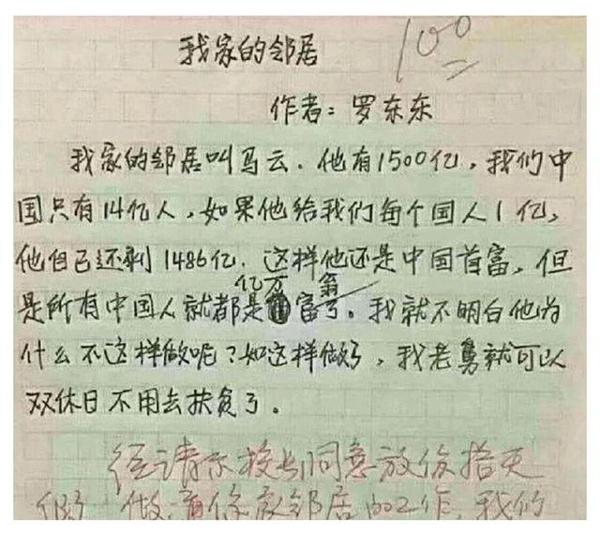 100
我家的邻居
作者：罗东东
我家的邻居叫马云．他有1500亿，我们中
国只有14亿人，如果他给我们每个国人1亿，
他自己还剩1486亿．这样他还是中国首富，但
亿万 翁
是所有中国人就都是富了。我就不明白他为
什么不这样做呢？如这样做了，我老舅就可以
双休日不用去扶贫了。
经请示校长同意放你拾天
假 做 你家邻居的工作，我们